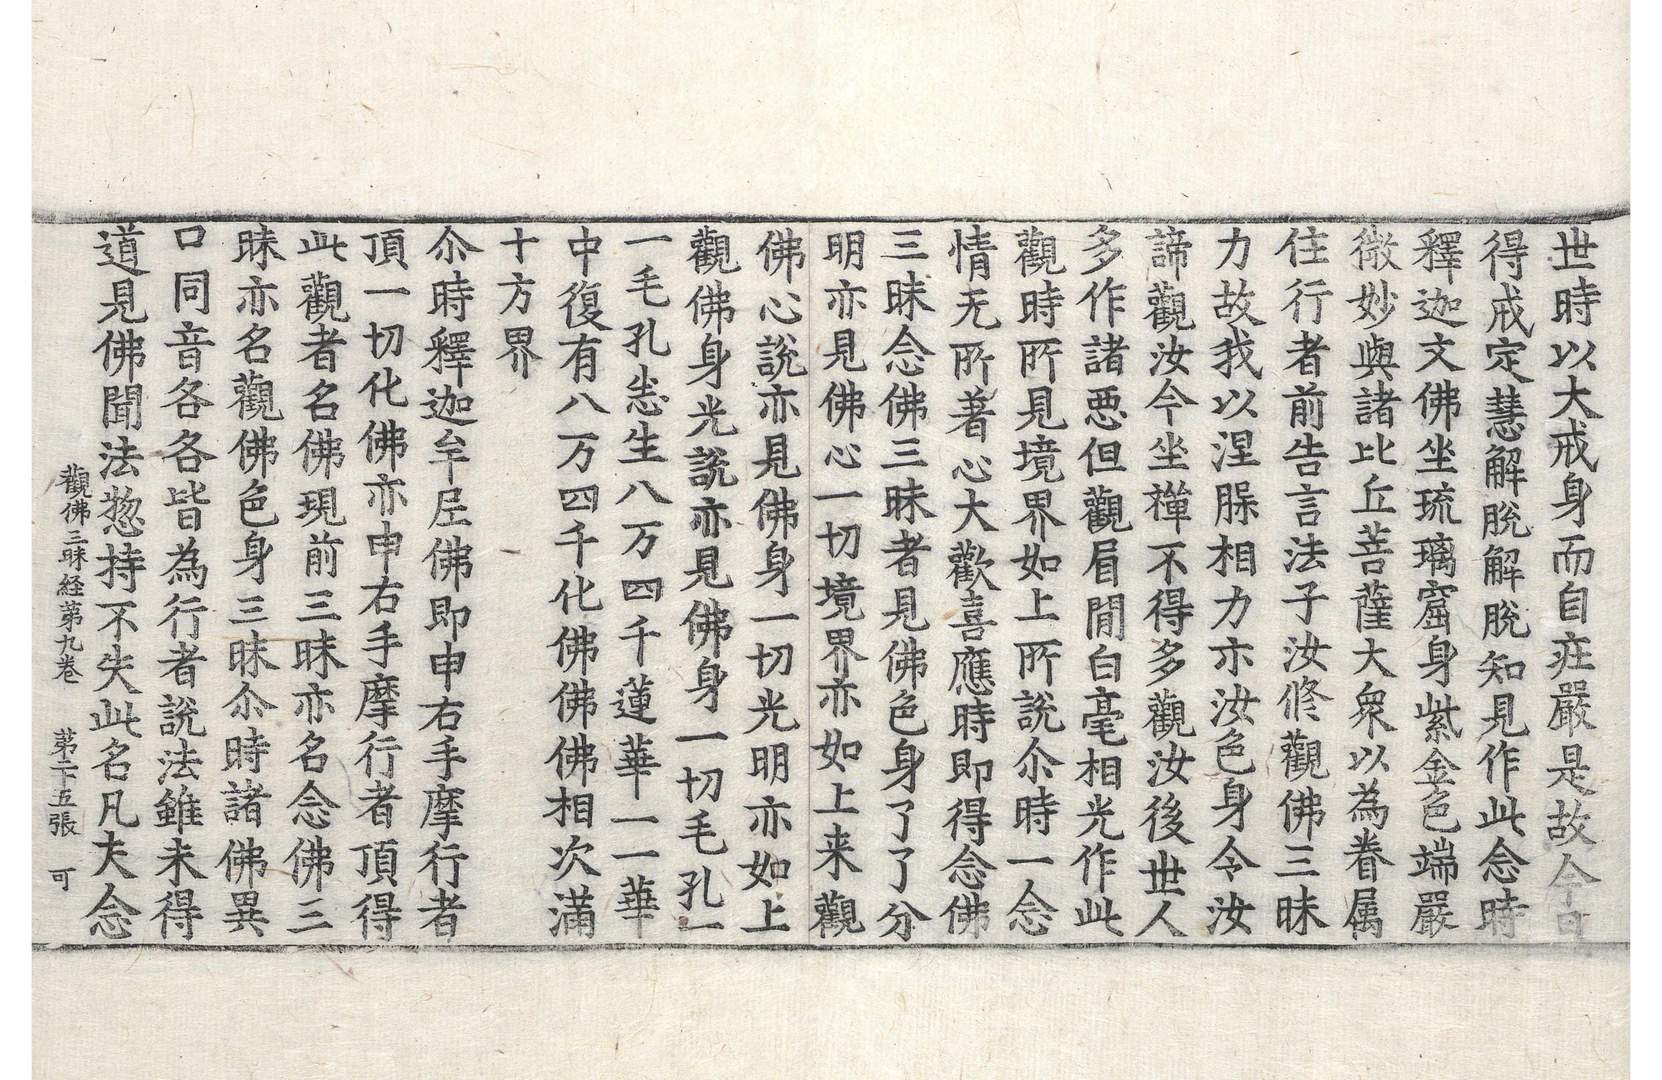 世時以大戒身而自疘嚴是故今可
得戒定慧解脫解脫知見作此念時
釋迦文佛坐琉璃窟身紫金色端嚴
微妙與諸比丘菩薩大衆以為眷属
住行者前告言法子汝修觀佛三昧
力故我以涅𣍐相力亦汝色身令汝
諦觀汝今坐禪不得多觀汝後世人
多作諸惡但觀眉間白毫相光作此
觀時所見境界如上所說尒時一念
情无所著心大歡喜應時即得念佛
三昧念佛三昧者見佛色身了了分
明亦見佛心一切境界亦如上来觀
佛心說亦見佛身一切光明亦如上
觀佛身光說亦見佛身一切毛孔一
一毛孔𢘻生八万四千蓮華一一華
中復有八万四千化佛佛佛相次滿
十方界
尒時釋迦牟𡰱佛即申右手摩行者
頂一切化佛亦申右手摩行者頂得
此觀者名佛現前三昧亦名念佛三
昧亦名觀佛色身三昧尒時諸佛異
口同音各各皆為行者說法雖未得
道見佛聞法惣持不失此名凡夫念
觀佛三昧経第九卷　第二十五張　可